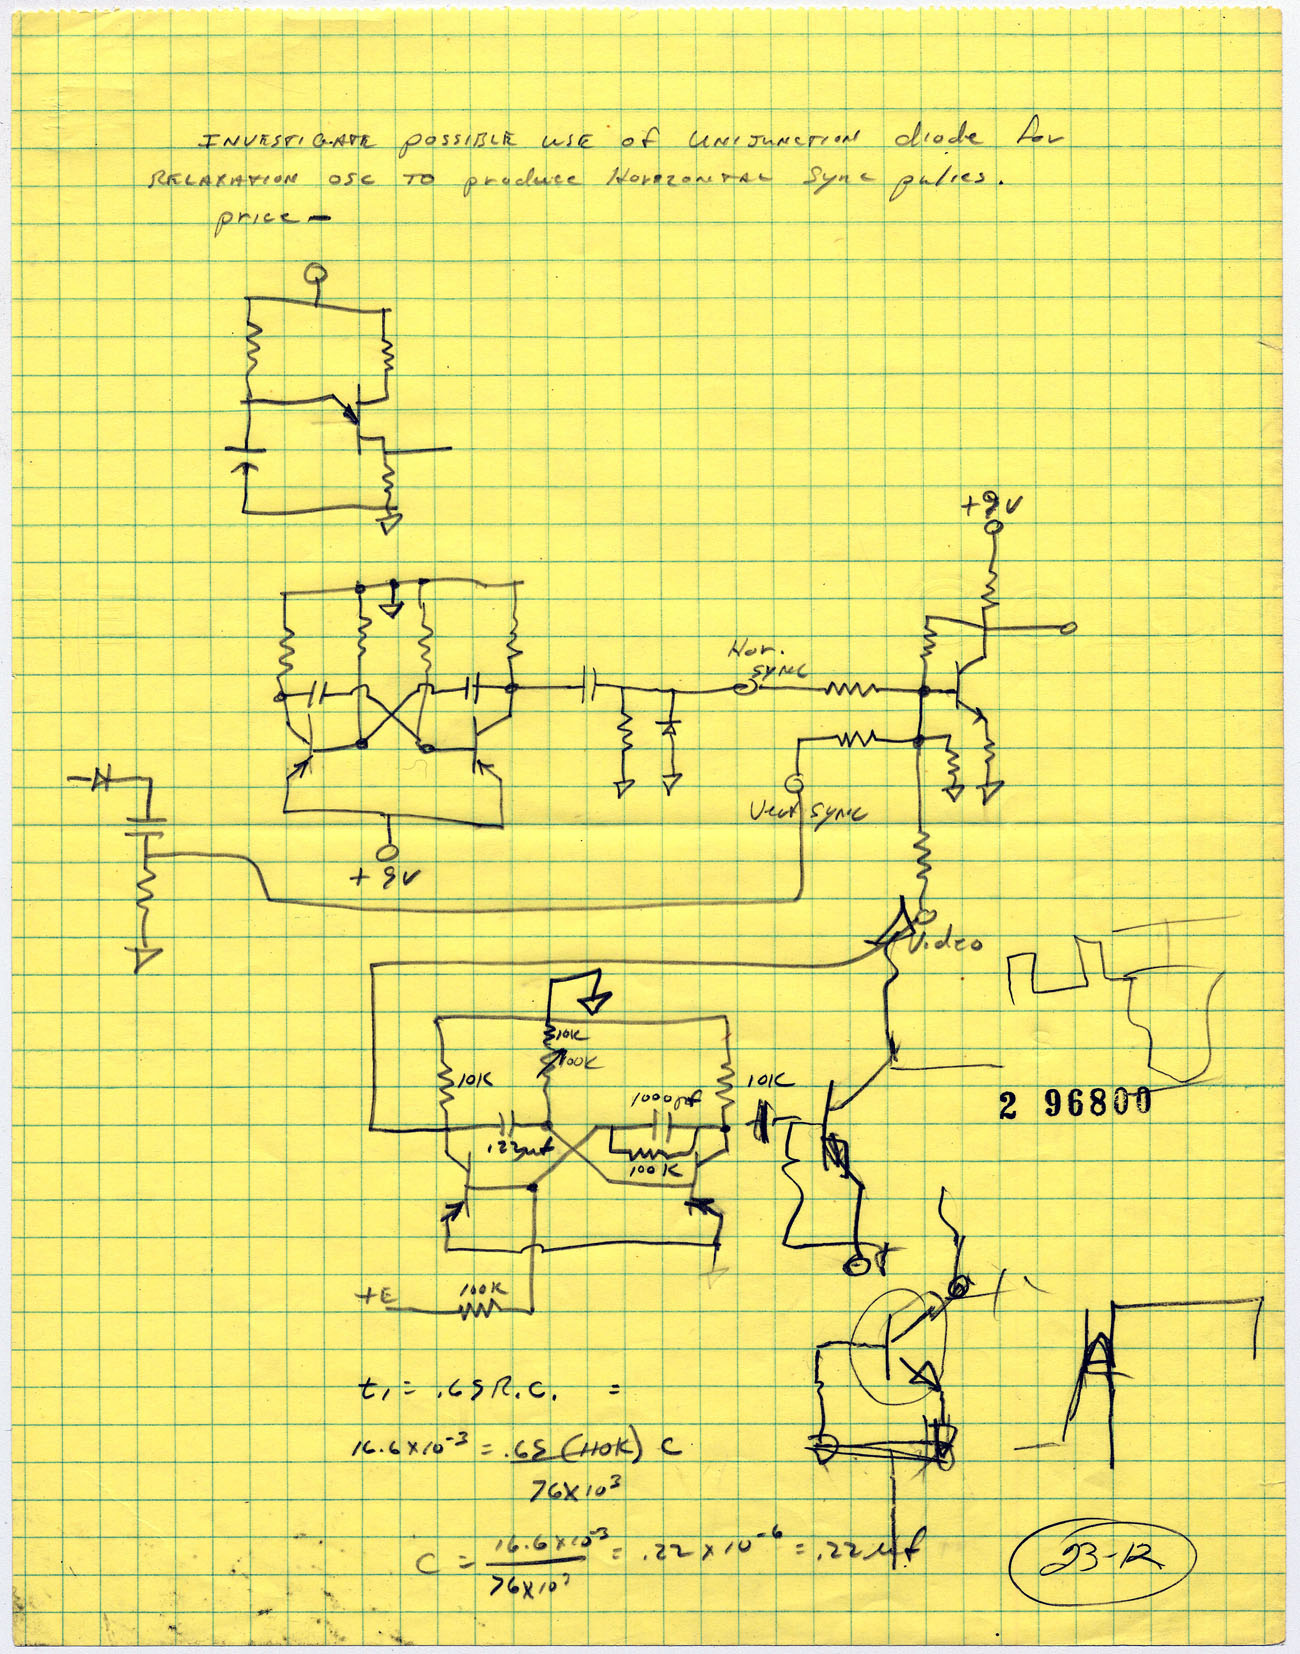 INVESTIGATE possible use of UNIJUNCTION diode for
RELAXATION OSC TO produce Horizontal Sync pulses.
price —
+9V
Hor.
SYNC
Vert SYNC
+9V
Video
10K
100K
10K
1000pf
10K
.122µf
100K
2 96800
+E
100K
t₁ = .69 R.C. =
16.6 x 10⁻³ = .69 (110K) C
76 x 10³
C = 16.6 x 10⁻³ / 76 x 10³ = .22 x 10⁻⁶ = .22 µf
23-12